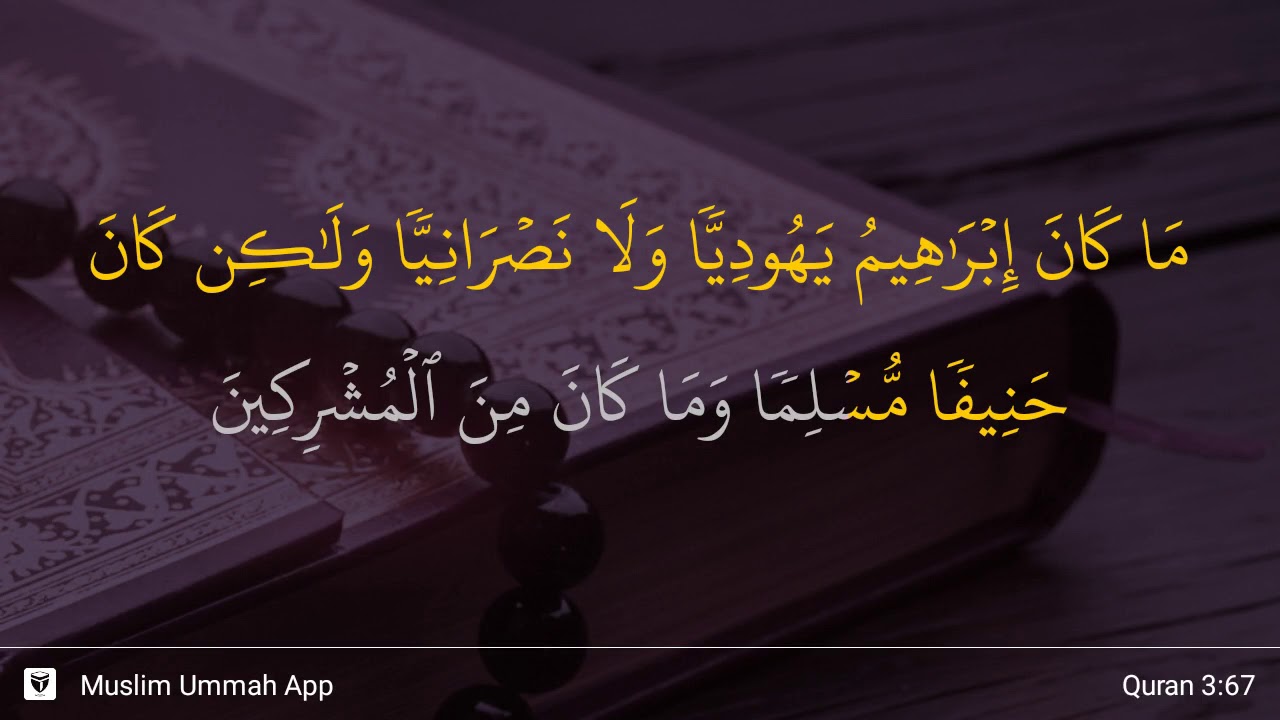 مَا كَانَ إِبْرَٰهِيمُ يَهُودِيًّا وَلَا نَصْرَانِيًّا وَلَـٰكِن كَانَ
حَنِيفًا مُّسْلِمًا وَمَا كَانَ مِنَ ٱلْمُشْرِكِينَ
Muslim Ummah App
Quran 3:67